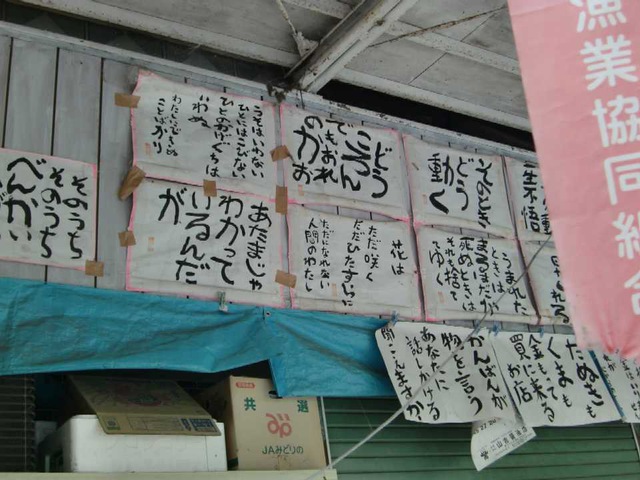 そのうち
そのうち
べんかい
うそはいわない
ひとにはこびない
ひとのかげぐちは
いわぬ
わたしにできぬ
ことばかり
どう
ころん
でもおれ
のかお
そのとき
どう
動く
一生不悟
あたまじゃ
わかって
いるんだ
が
花は
ただ咲く
ただひたすらに
ただになれない
人間のわたし
うまれた
ときは
まるのはだか
死ぬときは
それも捨て
てゆく
かんばんが
物を言う
あなたに
話しかける
聞こえますか
たぬきも
くまも
金も来る
買ってる
お店
漁業協同組合
共選
JAみどりの